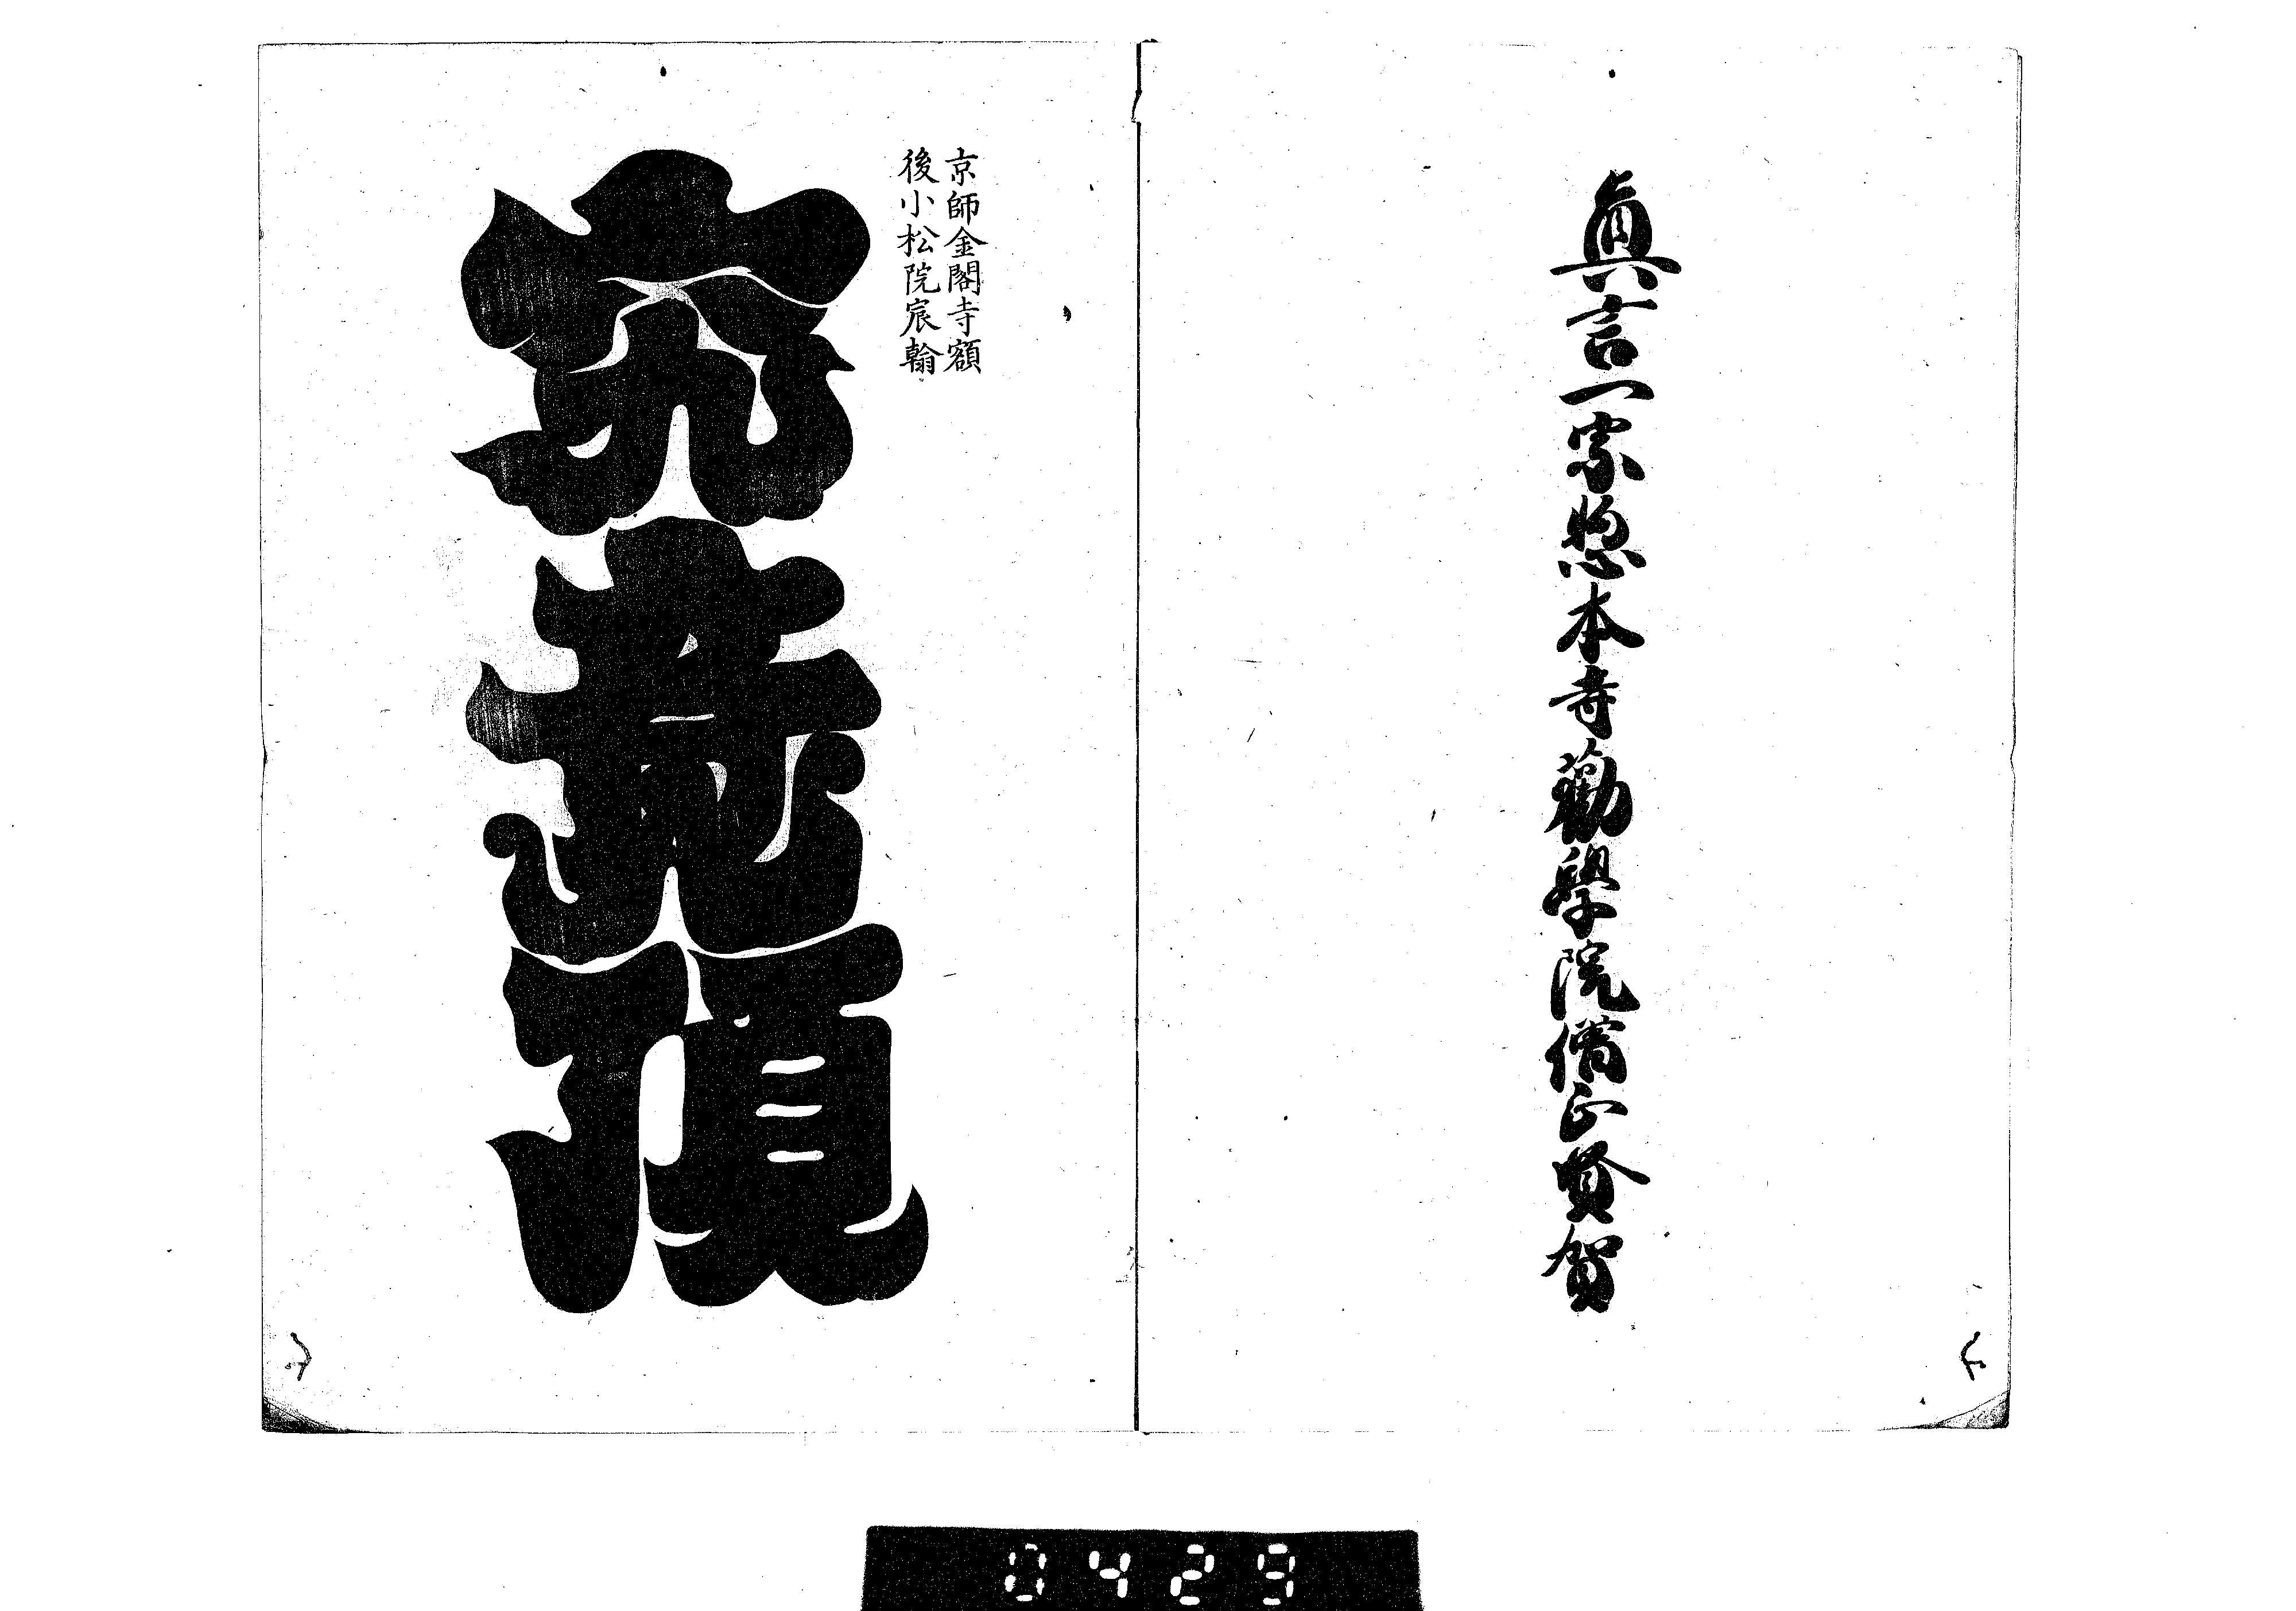 真言一宗惣本寺勸學院僧正賢賀
京師金閣寺額
後小松院宸翰
究竟頂
0429